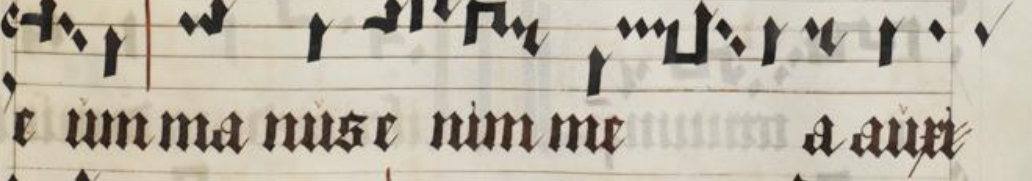 e um ma nus e nim me a auxi⸗